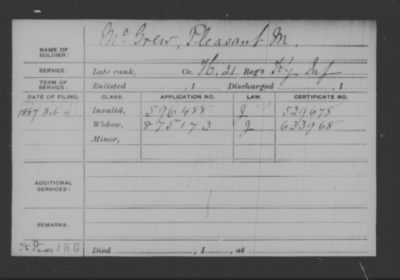 NAME OF SOLDIER: McGrew, Pleasant M.
SERVICE: Late rank, Co. H, 21 Reg't Ky. Inf
TERM OF SERVICE: Enlisted , 1 Discharged , 1
DATE OF FILING. CLASS. APPLICATION NO. LAW. CERTIFICATE NO.
1887 Invalid, 596488 J 529678
Widow, 875173 J 633968
Minor,
ADDITIONAL SERVICES:
REMARKS:
Died , 1 , at